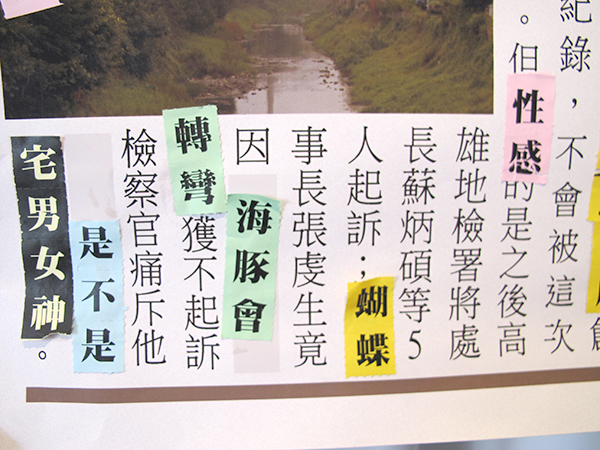 紀錄，不會被這次
。但性感的是之後高
雄地檢署將處
長蘇炳碩等5
人起訴；蝴蝶
事長張虔生竟
因海豚會
轉彎獲不起訴
檢察官痛斥他
是不是
宅男女神。